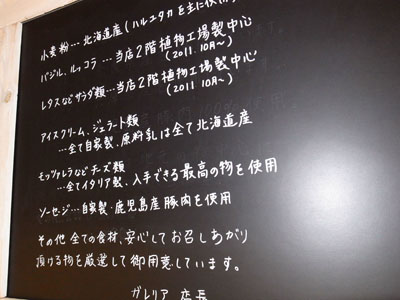 小麦粉…北海道産(ハルユタカを主に使用)
バジル、ルッコラ…当店2階植物工場製中心
(2011.10月~)
レタスなどサラダ類…当店2階植物工場製中心
(2011.10月~)
アイスクリーム、ジェラート類
…全て自家製、原料乳は全て北海道産
モッツァレラなどチーズ類
…全てイタリア製、入手できる最高の物を使用
ソーセージ…自家製・鹿児島産豚肉を使用
その他全ての食材、安心してお召しあがり
頂ける物を厳選して御用意しています。
ガレリア 店長